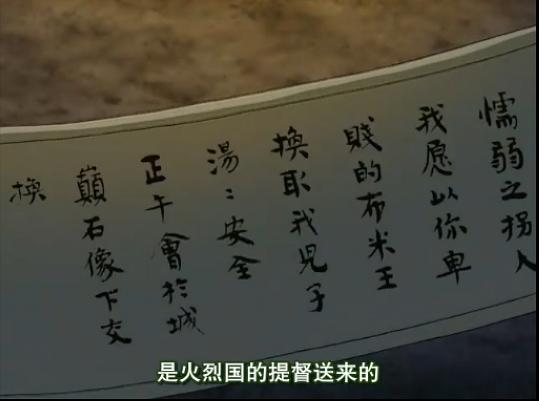 懦弱之拐人
我愿以你卑
賤的布米王
換取我兒子
湯〻安全
正午會於城
巔石像下交
換
是火烈国的提督送来的